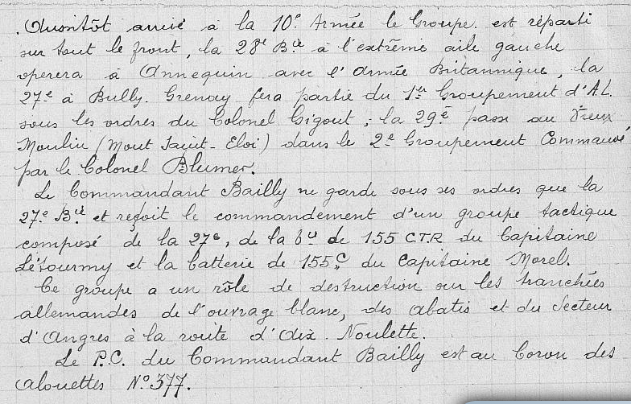 . Aussitôt arrivé à la 10e Armée le Groupe est réparti
sur tout le front, la 28e Bie à l'extrême aile gauche
operera à Annequin avec l'Armée Britannique, la
27e à Bully. Grenay fera partie du 1er Groupement d'A.L.
sous les ordres du Colonel Gigout ; la 29e passe au Vieux
Moulin (Mont Saint-Eloi) dans le 2e Groupement Commandé
par le Colonel Blumer.
Le Commandant Bailly ne garde sous ses ordres que la
27e Bie et reçoit le commandement d'un groupe tactique
composé de la 27e, de la bie de 155 CTR du Capitaine
Létourmy et la batterie de 155C du Capitaine Morel.
Ce groupe a un rôle de destruction sur les tranchées
allemandes de l'ouvrage blanc, des abatis et du Secteur
d'Angres à la route d'Aix. Noulette.
Le P.C. du Commandant Bailly est au Coron des
Alouettes No 377.